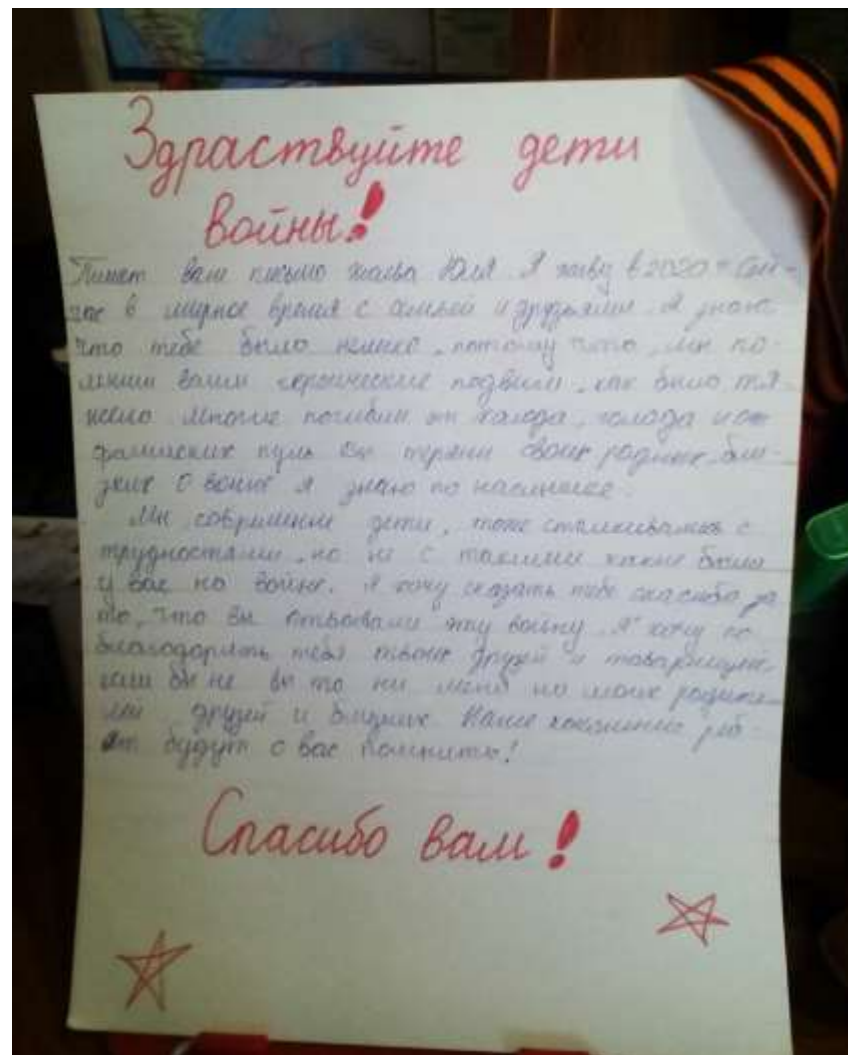 Здраствуйте дети
войны!
Пишет вам письмо Юля Я живу в 2020 г Сей-
час в мирное время с семьёй и друзьями. Я знаю
что тебе было нелегко, потому что, мы по-
мним ваши героические подвиги, как было тя-
жело многие погибли от холода, голода и от
фашиских пуль вы теряли своих родных бли-
зких О войне я знаю по
Мы совремные дети, тоже сталкиваемся с
трудностями, но не с такими какие были
у вас на войне. Я хочу сказать тебе спасибо за
то, что вы отвоевали эту войну. Я хочу по
благодарить тебя твоих друзей и товарищей,
если бы не вы то ни меня ни моих родите-
лей друзей и близких Наше поколение
будут о вас помнить!
Спасибо вам!